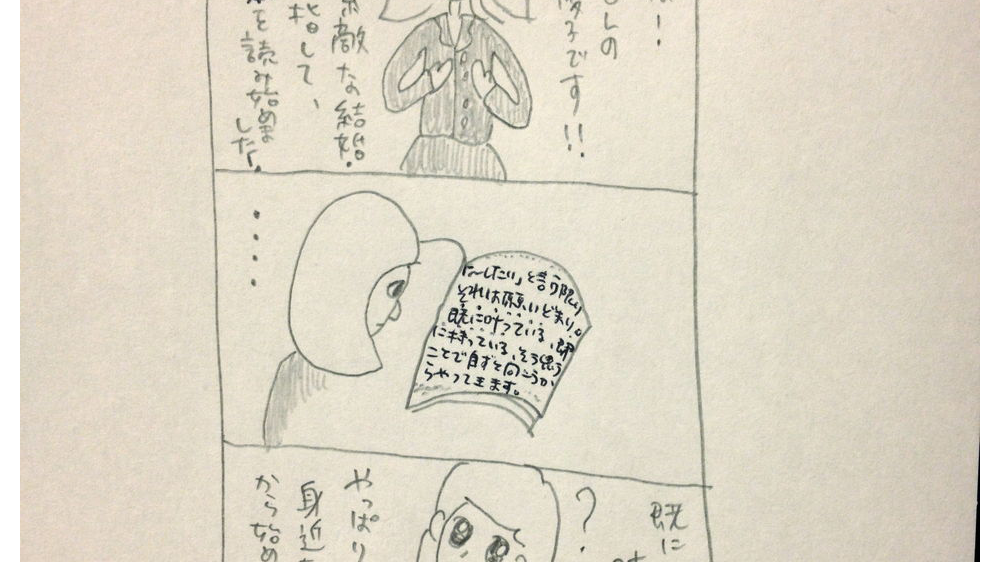 しの
子です!!
敵な結婚。
指して、
を読み始めま
した。
・・・・
「〜したい」と言う限り
それは願いどまり。
既に叶っている、即
に持っている、そう思う
ことで自ずと向こうか
らやってきます。
既に
?
やっぱり
身近な
から始め